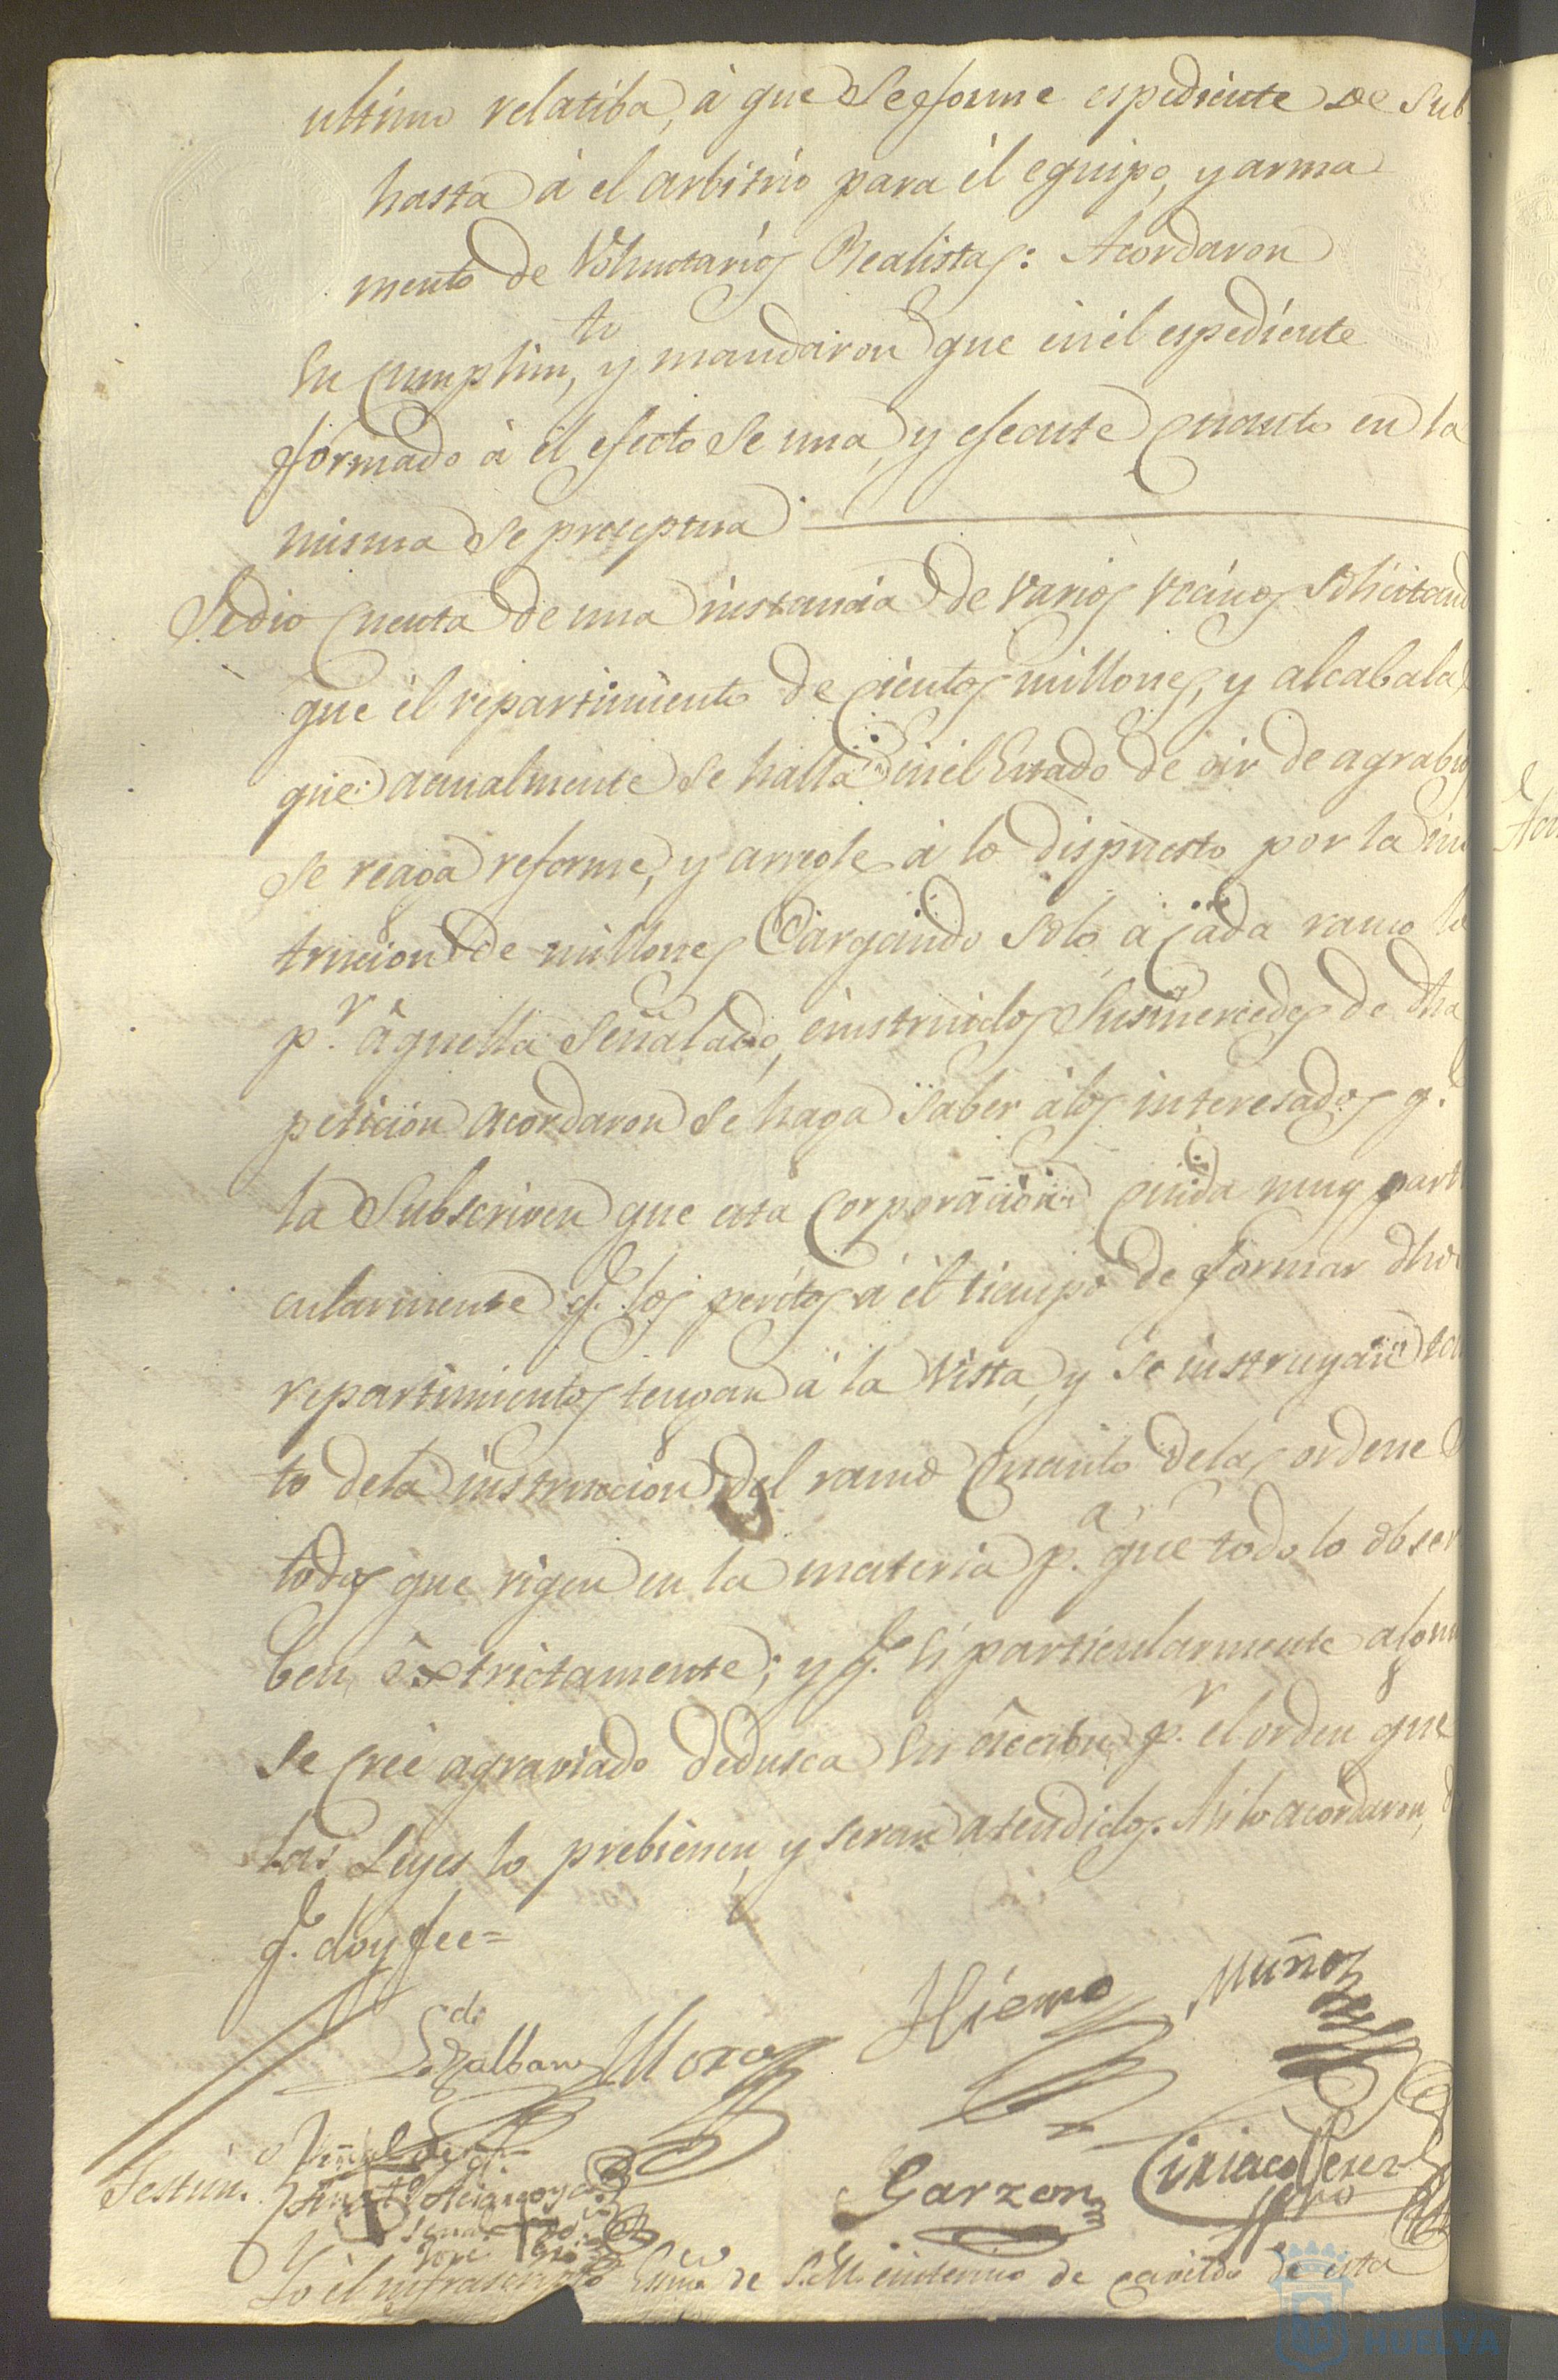 ultimo relatiba, á que se forme espediente de sub
hasta á el arbitrio para él equipo, y arma
mento de Voluntarios Realistas: Acordaron
su cumplim.to, y mandaron que en él espediente
formado á él efecto se una, y efecute quanto en la
misma se preceptua
Se dio cuenta de una instancia de varios vecinos solicitand
que él repartimiento de cientos millones, y alcabalas
que actualmente se halla en él Estado de oir de agrabios
se reaga reforme, y arregle á lo dispuesto por la ins
truccion de millones Cargando solo á cada ramo lo
p.r aquella señalado, e instruidos Sus mercedes de dha
peticion acordaron se haga saber á los interesados q.e
la subscriven que esta corporacion cuida muy parti
cularmente q.e los peritos á él tiempo de formar dhos
repartimientos tengan á la vista, y se instruyan tan
to de la instruccion del ramo quanto de las ordenes
todas que rigen en la materia p.a que todo lo obser
ben extrictamente; y q.e si particularmente alguno
se creé agraviado dedusca su accion p.r el orden que
las Leyes lo prebienen, y seran atendidos. Asi lo acordaron, d
q.e doy fee=
Hierro Muñoz
Moro
Garzon Ciriaco Perez
Testim.
José
Yo él infrascripto Essno de S.M. e interino de cavildo de esta
HUELVA